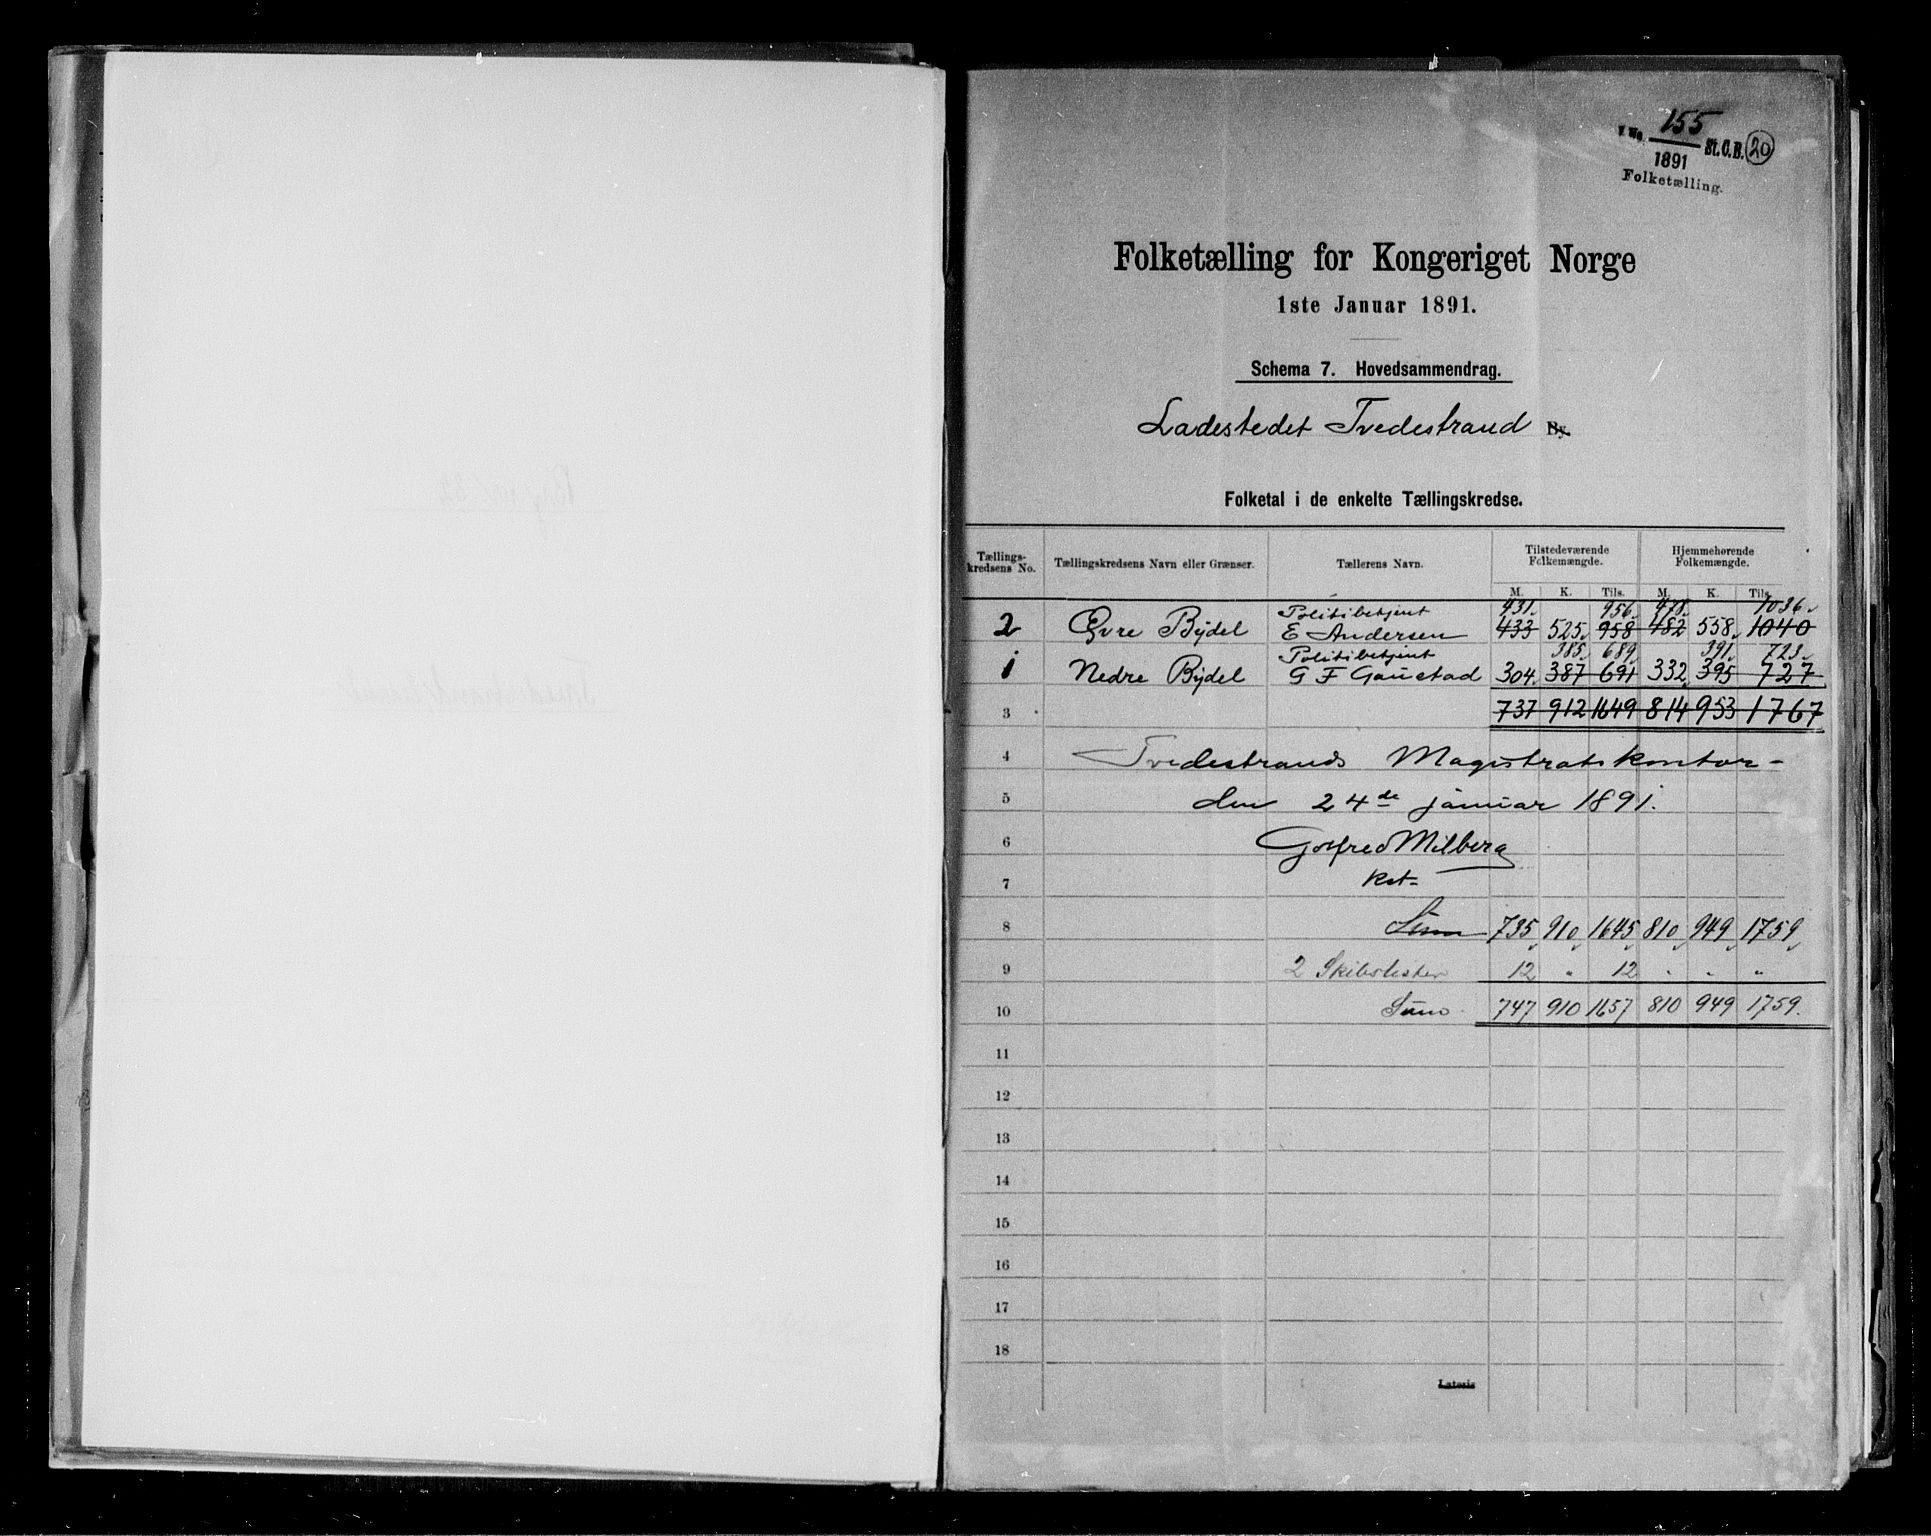 J. No. 155 St. C. B. 20
1891
Folketælling.
Folketælling for Kongeriget Norge
1ste Januar 1891.
Schema 7. Hovedsammendrag.
Ladestedet Tvedestrand By.
Folketal i de enkelte Tællingskredse.
Tællings-kredsens No. Tællingskredsens Navn eller Grænser. Tællerens Navn. Tilstedeværende Folkemængde. Hjemmehørende Folkemængde.
M. K. Tils. M. K. Tils.
Politibetjent 431. 956. 478. 1036.
2 Øvre Bydel E Andersen 433 525. 958 482 558. 1040
Politibetjent 385. 689. 391. 723.
1 Nedre Bydel G F Gaustad 304. 387 691 332. 395 727
3 737 912 1649 814 953 1767
4 Tvedestrands Magistratskontor-
5 den 24de januar 1891.
6 Gotfred Milberg
7 kst-
8 Sum 735 910 1645 810 949 1759
9 2 Skibslister 12 " 12 " " "
10 Sum 747 910 1657 810 949 1759.
11
12
13
14
15
16
17
18
Lateris